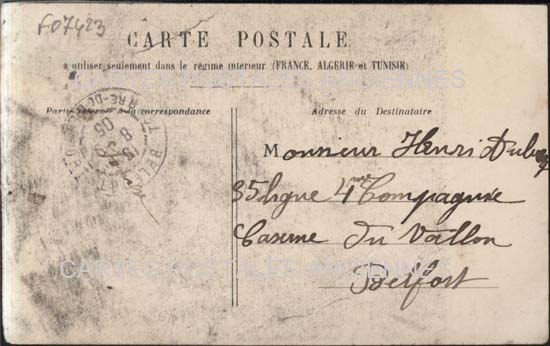 F07423
CARTE POSTALE
à utiliser seulement dans le régime intérieur (FRANCE, ALGERIE et TUNISIE)
Partie réservée à la correspondance
Adresse du Destinataire
Monsieur Henri
35 Ligne 4me Compagnie
Caserne du Vallon
Belfort
CARTES-POSTALES-ANCIENNES
CARTES-POSTALES-ANCIENNES